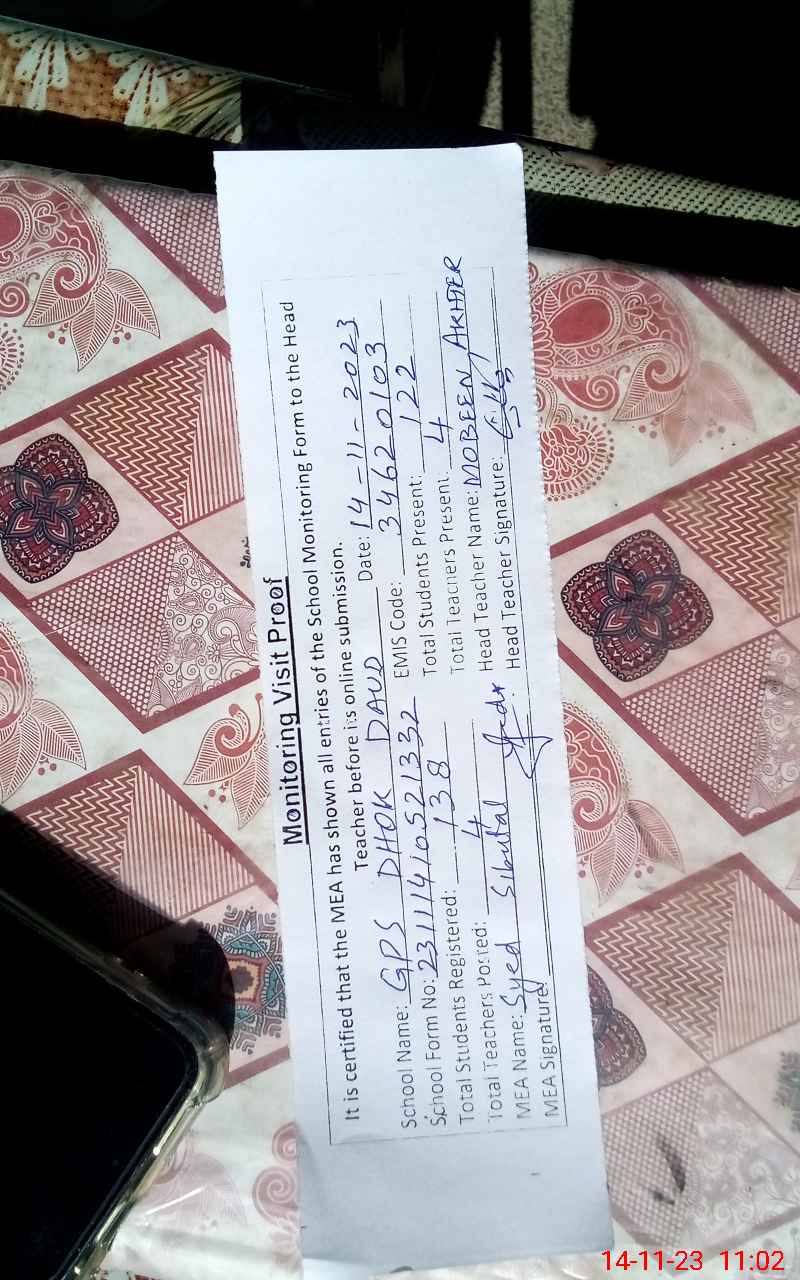 Monitoring Visit Proof
It is certified that the MEA has shown all entries of the School Monitoring Form to the Head
Teacher before its online submission.
School Name: GPS DHOK DAUD Date: 14-11-2023
School Form No: 231114105521332 EMIS Code: 34620103
Total Students Registered: 138 Total Students Present: 122
Total Teachers Posted: 4 Total Teachers Present: 4
MEA Name: Syed Head Teacher Name: MOBEEN AKHTER
MEA Signature: Head Teacher Signature:
14-11-23 11:02